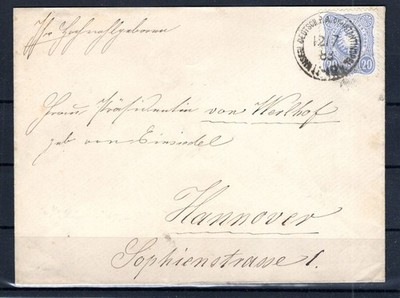 Ihr Hochwohlgeboren
Frau Präsidentin von Weilhof
geb von Einsiedel
Hannover
Sophienstrasse 1.
12/7
83
20